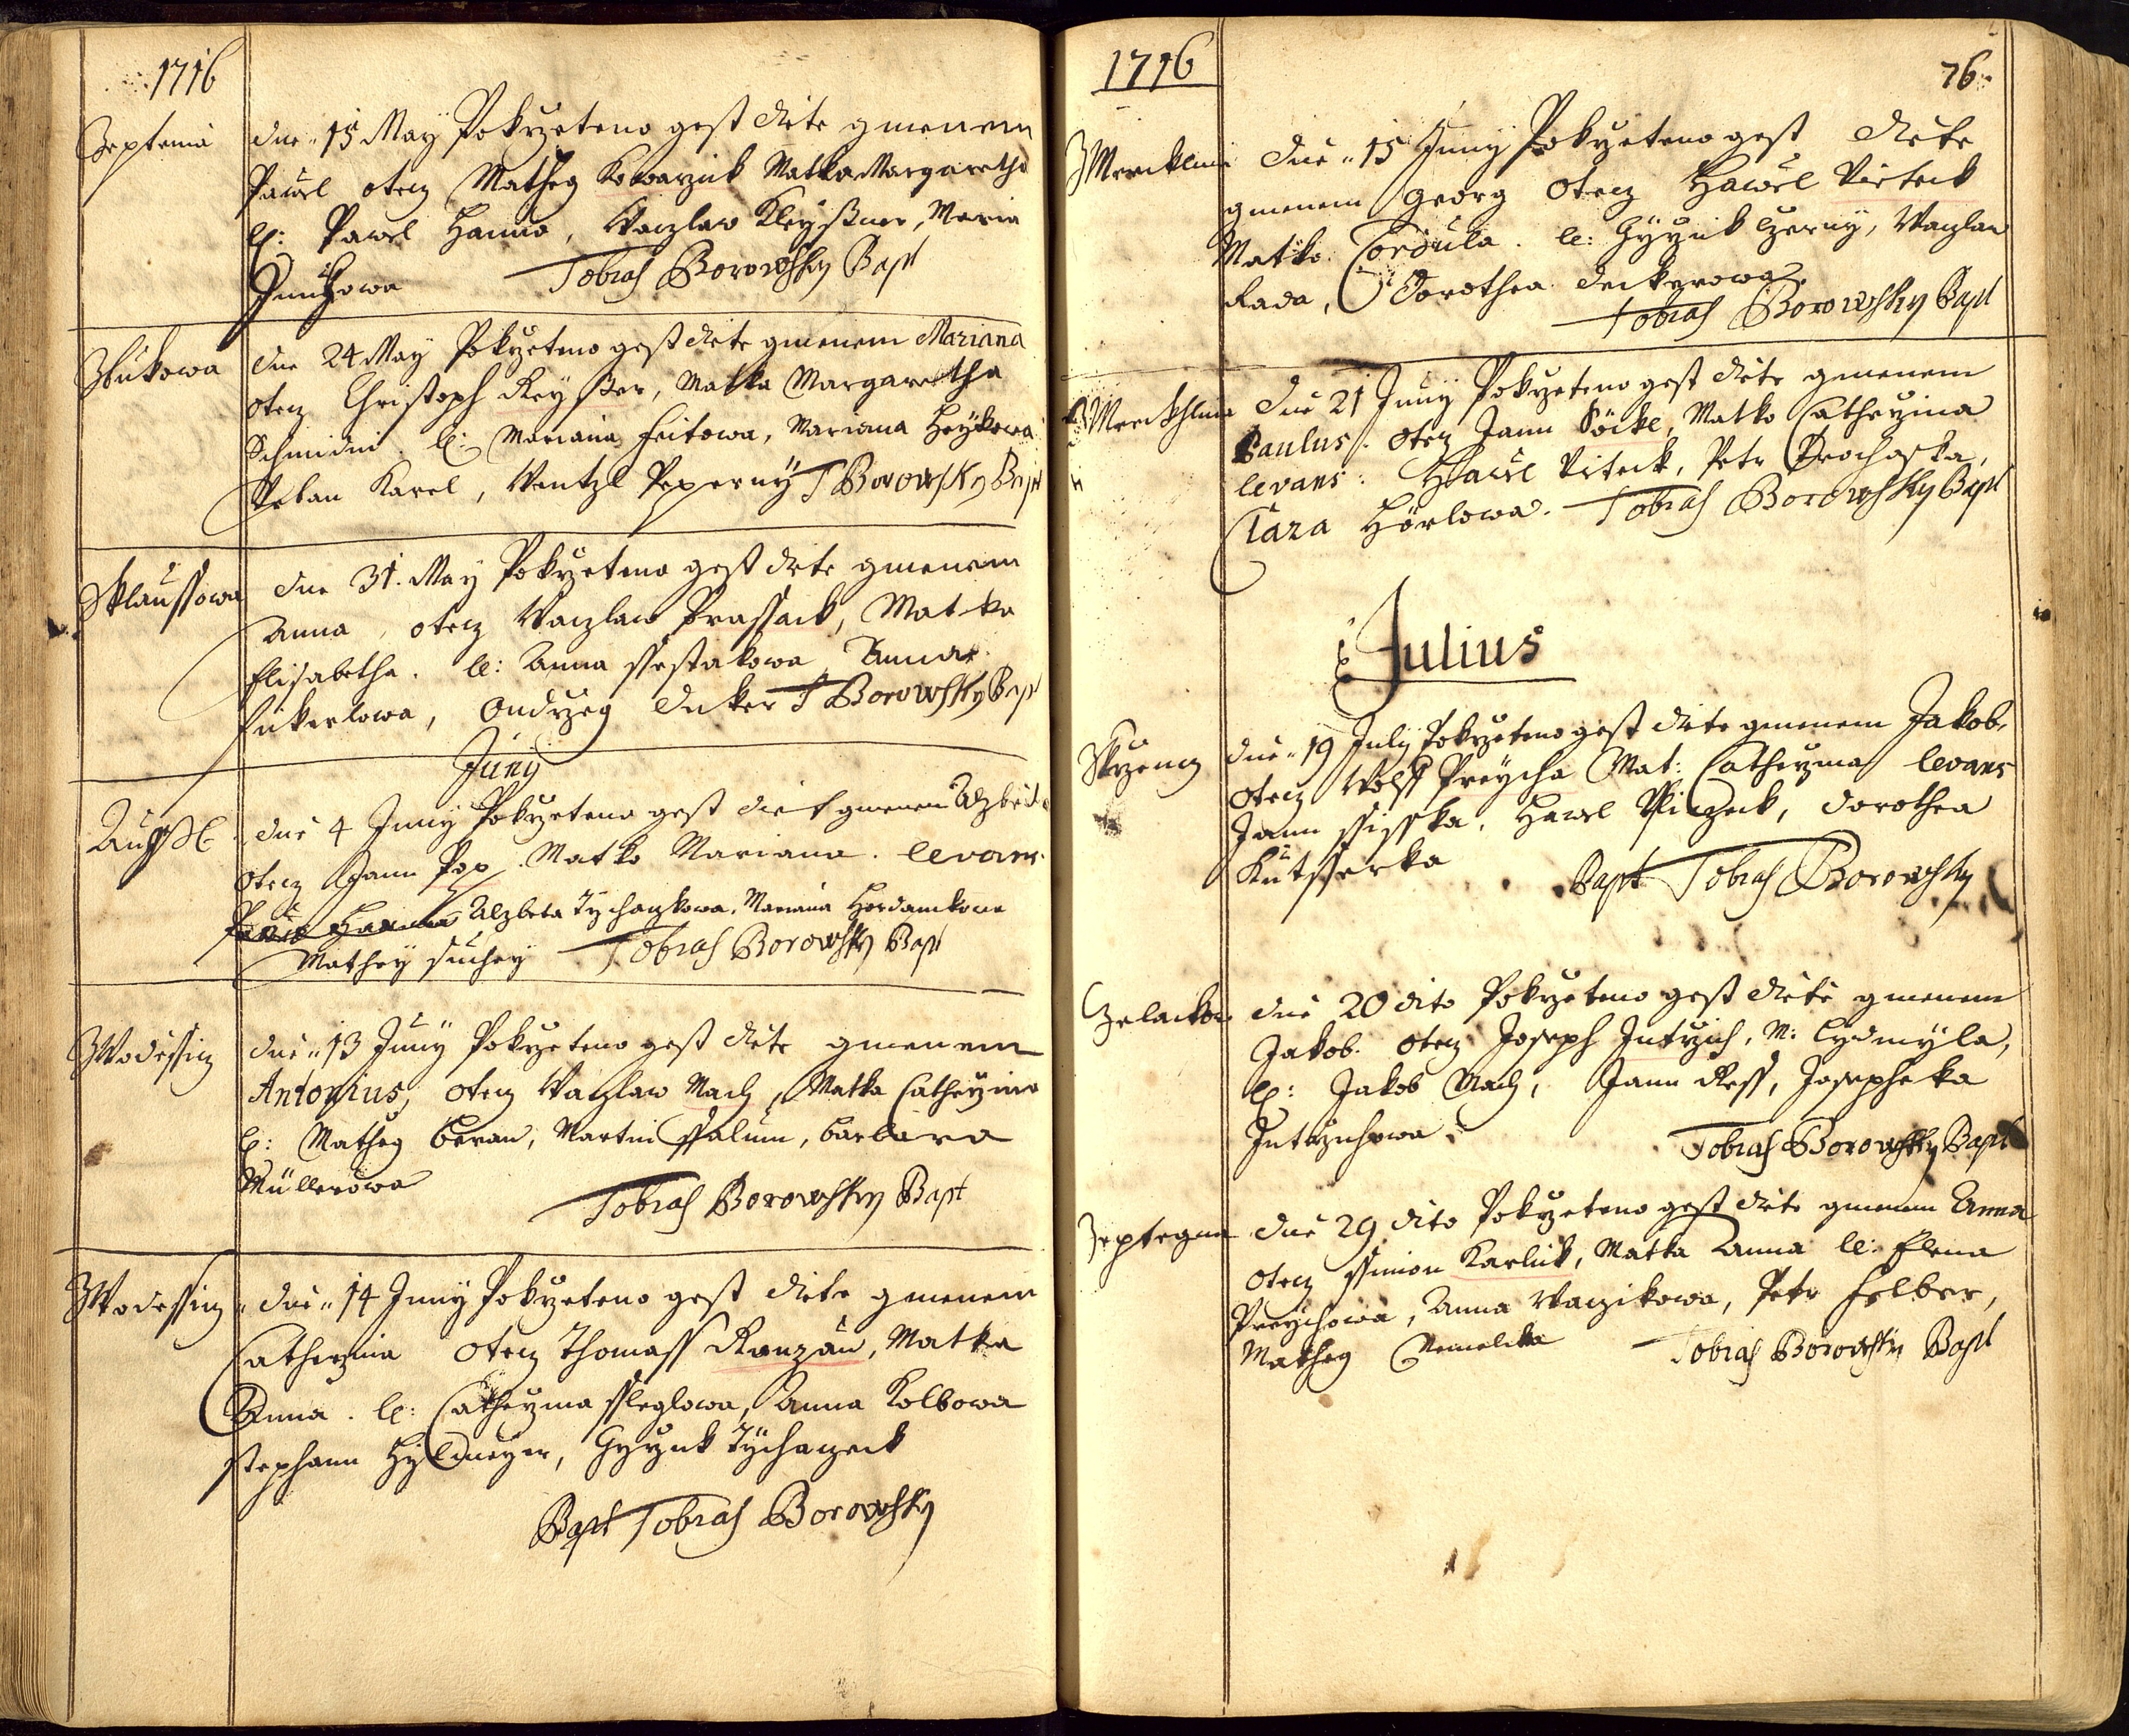 1716
Zeptenia
dne 15 May Pokrzteno gest dite gmenem
Pawel otecz Matheg Kowarzik Matka Margaretha
C: Pawel Hanno, Waczlaw Kleyssner, Maria
Tobias Borowsky Bapt
Zbukowa
dne 24 May Pokrzteno gest dite gmenem Mariana
otecz Christoph Reysser, Matka Margaretha
Schmidin. C: Mariana Feitowa, Mariana Heykowa
Urban Karel, Wentzl Peperny T Borowsky Bapt
Sklaussowa
dne 31. May Pokrzteno gest dite gmenem
Anna, otecz Waczlaw Prassack, Matka
Elisabetha. C: Anna ssestakowa, Anna
Cukerlowa, Ondrzeg Deker T Borowsky Bapt
Juny
dne 4 Juny Pokrzteno gest dite gmenem Alzbeta
otecz Jann Pop. Matka Mariana. Levans
Alzbeta Tychaczkowa, Mariana Hordamkowa
Mathey suchey Tobias Borowsky Bapt
ZWodessicz
dne 13 Juny Pokrzteno gest dite gmenem
Antonius, otecz Waczlaw Mach, Matka Catherzina
C: Matheg Beran, Martin ssalum, Barbara
Müllerowa
Tobias Borowsky Bapt
ZWodessicz
dne 14 Juny Pokrzteno gest dite gmenem
Catherzina otecz Thomass Ranzau, Matka
Anna. C: Catherzina ssleglowa, Anna Kolbowa
stephann Hyldmeyer, Gyrzik Tychaczeck
Bapt Tobias Borowsky
1716
76
ZMerklina
dne 15 Juny Pokrzteno gest dite
gmenem Georg otecz Hawel Viteck
Matka Cordula. C: Gyrzik Czerny, Waczlaw
Rada, Dorothea Deckerowa
Tobias Borowsky Bapt
ZMerckhlina
dne 21 Juny Pokrzteno gest dite gmenem
Paulus. otecz Jann Böcke, Matka Catherzina
levans: Hawel Viteck, Petr Prochaska,
Clara Hörlowa. Tobias Borowsky Bapt
Julius
Skrzencz
dne 19 July Pokrzteno gest dite gmenem Jakob.
otecz Wolff Preycha Mat: Catherzina levans
Jann ssisska, Hawel Viczeck, Dorothea
Kutsserka
Bapt Tobias Borowsky
Zelackow
dne 20 dito Pokrzteno gest dite gmenem
Jakob. otecz Joseph Intrzich, M: Lydmyla,
C: Jakob Mach, Jann Ress, Josepheka
Intrzichowa
Tobias Borowsky Bapt
dne 29 dito Pokrzteno gest dite gmenem Anna
otecz ssimon Karlik, Matka Anna C: Elena
Preychowa, Anna Waczikowa, Petr Felber,
Matheg Nemelka Tobias Borowsky Bapt